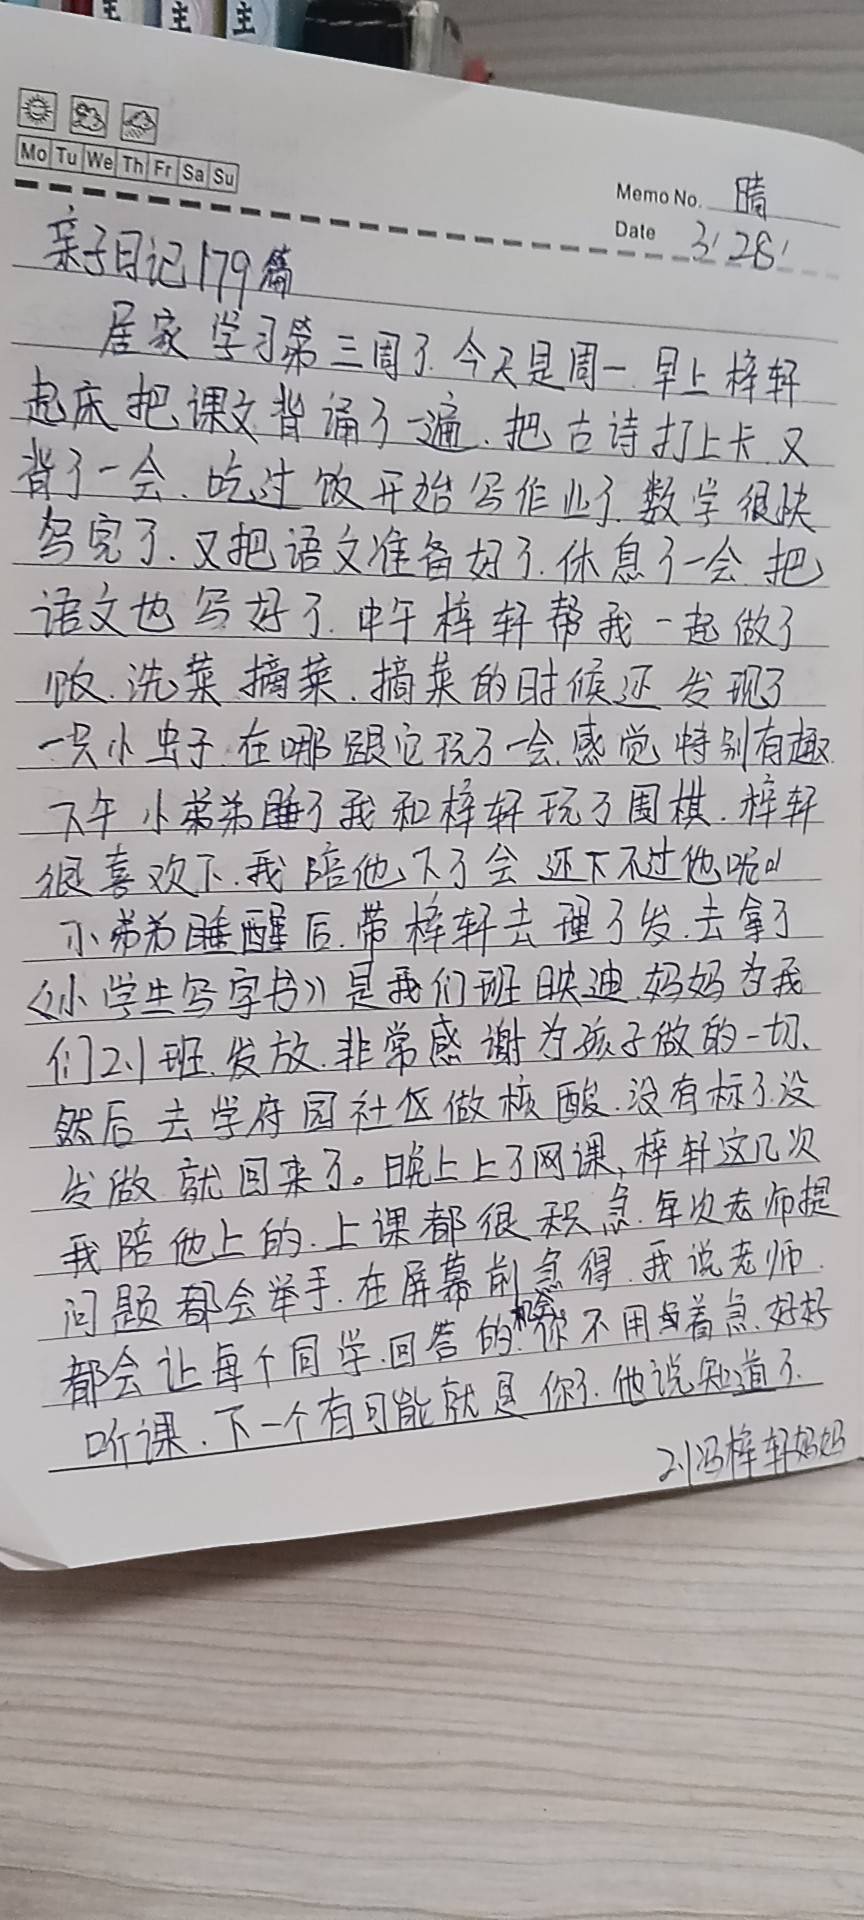 主 主 主
Mo Tu We Th Fr Sa Su
Memo No. 晴
Date 3/28/
亲子日记179篇
居家学习第三周了.今天是周一.早上梓轩
起床把课文背诵了一遍.把古诗打上卡.又
背了一会.吃过饭开始写作业了.数学很快
写完了.又把语文准备好了.休息了一会.把
语文也写好了.中午梓轩帮我一起做了
饭.洗菜摘菜.摘菜的时候还发现了
一只小虫子.在哪跟它玩了一会.感觉特别有趣.
下午小弟弟睡了我和梓轩玩了围棋.梓轩
很喜欢下.我陪他下了会还下不过他呢!
小弟弟睡醒后.带梓轩去理了发.去拿了
《小学生写字书》是我们班映迪妈妈为我
们2.1班.发放.非常感谢为孩子做的一切.
然后去学府园社区做核酸.没有标了.没
发做就回来了。晚上上了网课,梓轩这几次
我陪他上的.上课都很积急.每次老师提
问题都会举手.在屏幕前急得.我说老师.
都会让每个同学.回答的机会.你不用着急.好好
听课.下一个有可能就是你了.他说知道了.
2.1冯梓轩妈妈